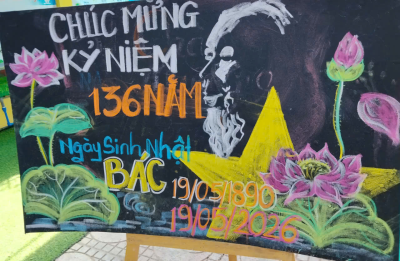 CHÚC MỪNG
KỶ NIỆM
136 NĂM
Ngày Sinh Nhật
BÁC
19/05/1890
19/05/2026